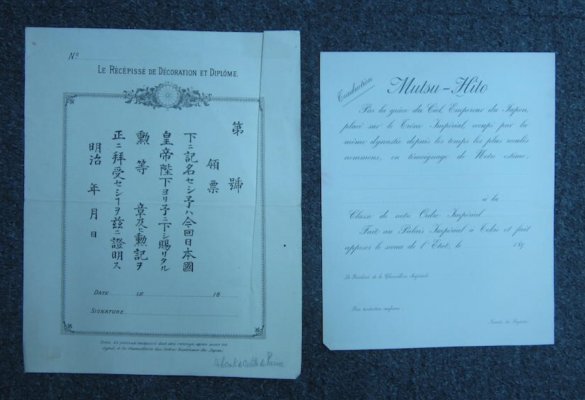 No
LE RÉCÉPISSÉ DE DÉCORATION ET DIPLÔME.
第 號
領票
下ニ記名セシ予ハ今回日本國
皇帝陛下ヨリ予ニ下シ賜リタル
勲 等 章及ヒ勲記ヲ
正ニ拝受セシヿヲ茲ニ證明ス
明治 年 月 日
DATE LE 18
SIGNATURE
Traduction
Mutsu-Hito
Par la grâce du Ciel, Empereur du Japon,
placé sur le Trône Impérial, occupé par la
même dynastie depuis les temps les plus reculés
nommons, en témoignage de Notre estime,
à la
Classe de notre Ordre Impérial
Fait au Palais Impérial à Tokio et fait
apposer le sceau de l'État, le 18
Le Président de la Chancellerie Impériale
Pour traduction conforme: